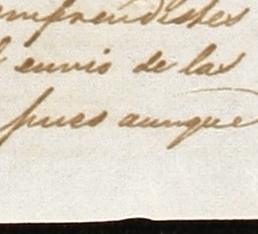 emprendistes
envio de las
pues aunque